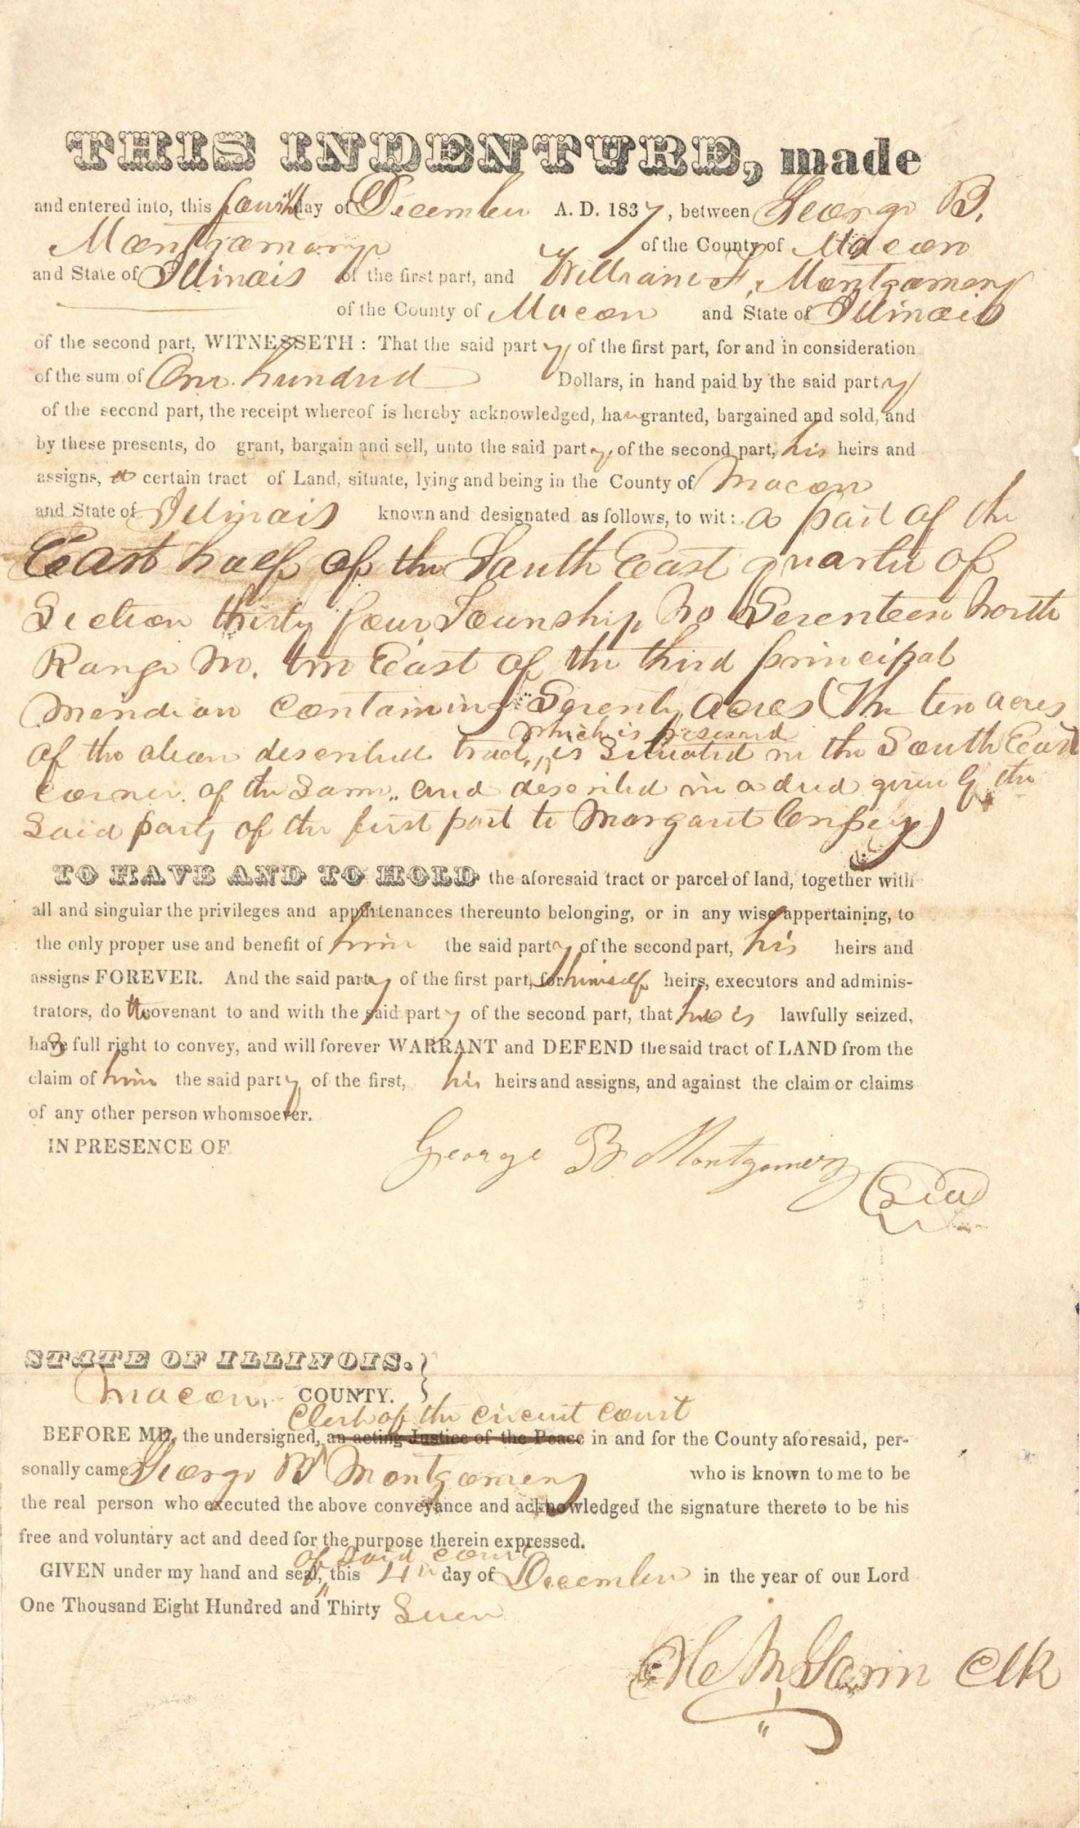 THIS INDENTURE, made
and entered into, this fourth day of December A. D. 1837, between George B.
Montgomery of the County of Macon
and State of Illinois of the first part, and William F. Montgomery
of the County of Macon and State of Illinois
of the second part, WITNESSETH: That the said party of the first part, for and in consideration
of the sum of One hundred Dollars, in hand paid by the said party
of the second part, the receipt whereof is hereby acknowledged, has granted, bargained and sold, and
by these presents, do grant, bargain and sell, unto the said party of the second part, his heirs and
assigns, a certain tract of Land, situate, lying and being in the County of Macon
and State of Illinois known and designated as follows, to wit: a part of the
East half of the South East quarter of
Section thirty four Township No Seventeen North
Range No. two East of the third principal
Meridian containing Seventy acres (The ten acres
which is reserved
of the above described tract, is Situated in the South East
corner of the Same, and described in a deed given by the
Said party of the first part to Margaret)
TO HAVE AND TO HOLD the aforesaid tract or parcel of land, together with
all and singular the privileges and appurtenances thereunto belonging, or in any wise appertaining, to
the only proper use and benefit of him the said party of the second part, his heirs and
assigns FOREVER. And the said party of the first part, for himself heirs, executors and adminis-
trators, doth covenant to and with the said party of the second part, that he is lawfully seized,
has full right to convey, and will forever WARRANT and DEFEND the said tract of LAND from the
claim of him the said party of the first, his heirs and assigns, and against the claim or claims
of any other person whomsoever.
IN PRESENCE OF
George B Montgomery
Seal
STATE OF ILLINOIS. }
Macon COUNTY.
Clerk of the circuit court
BEFORE ME, the undersigned, an acting Justice of the Peace in and for the County aforesaid, per-
sonally came George B Montgomery who is known to me to be
the real person who executed the above conveyance and acknowledged the signature thereto to be his
free and voluntary act and deed for the purpose therein expressed.
of said court
GIVEN under my hand and seal, this 4th day of December in the year of our Lord
One Thousand Eight Hundred and Thirty Seven
H M Gorin Clk